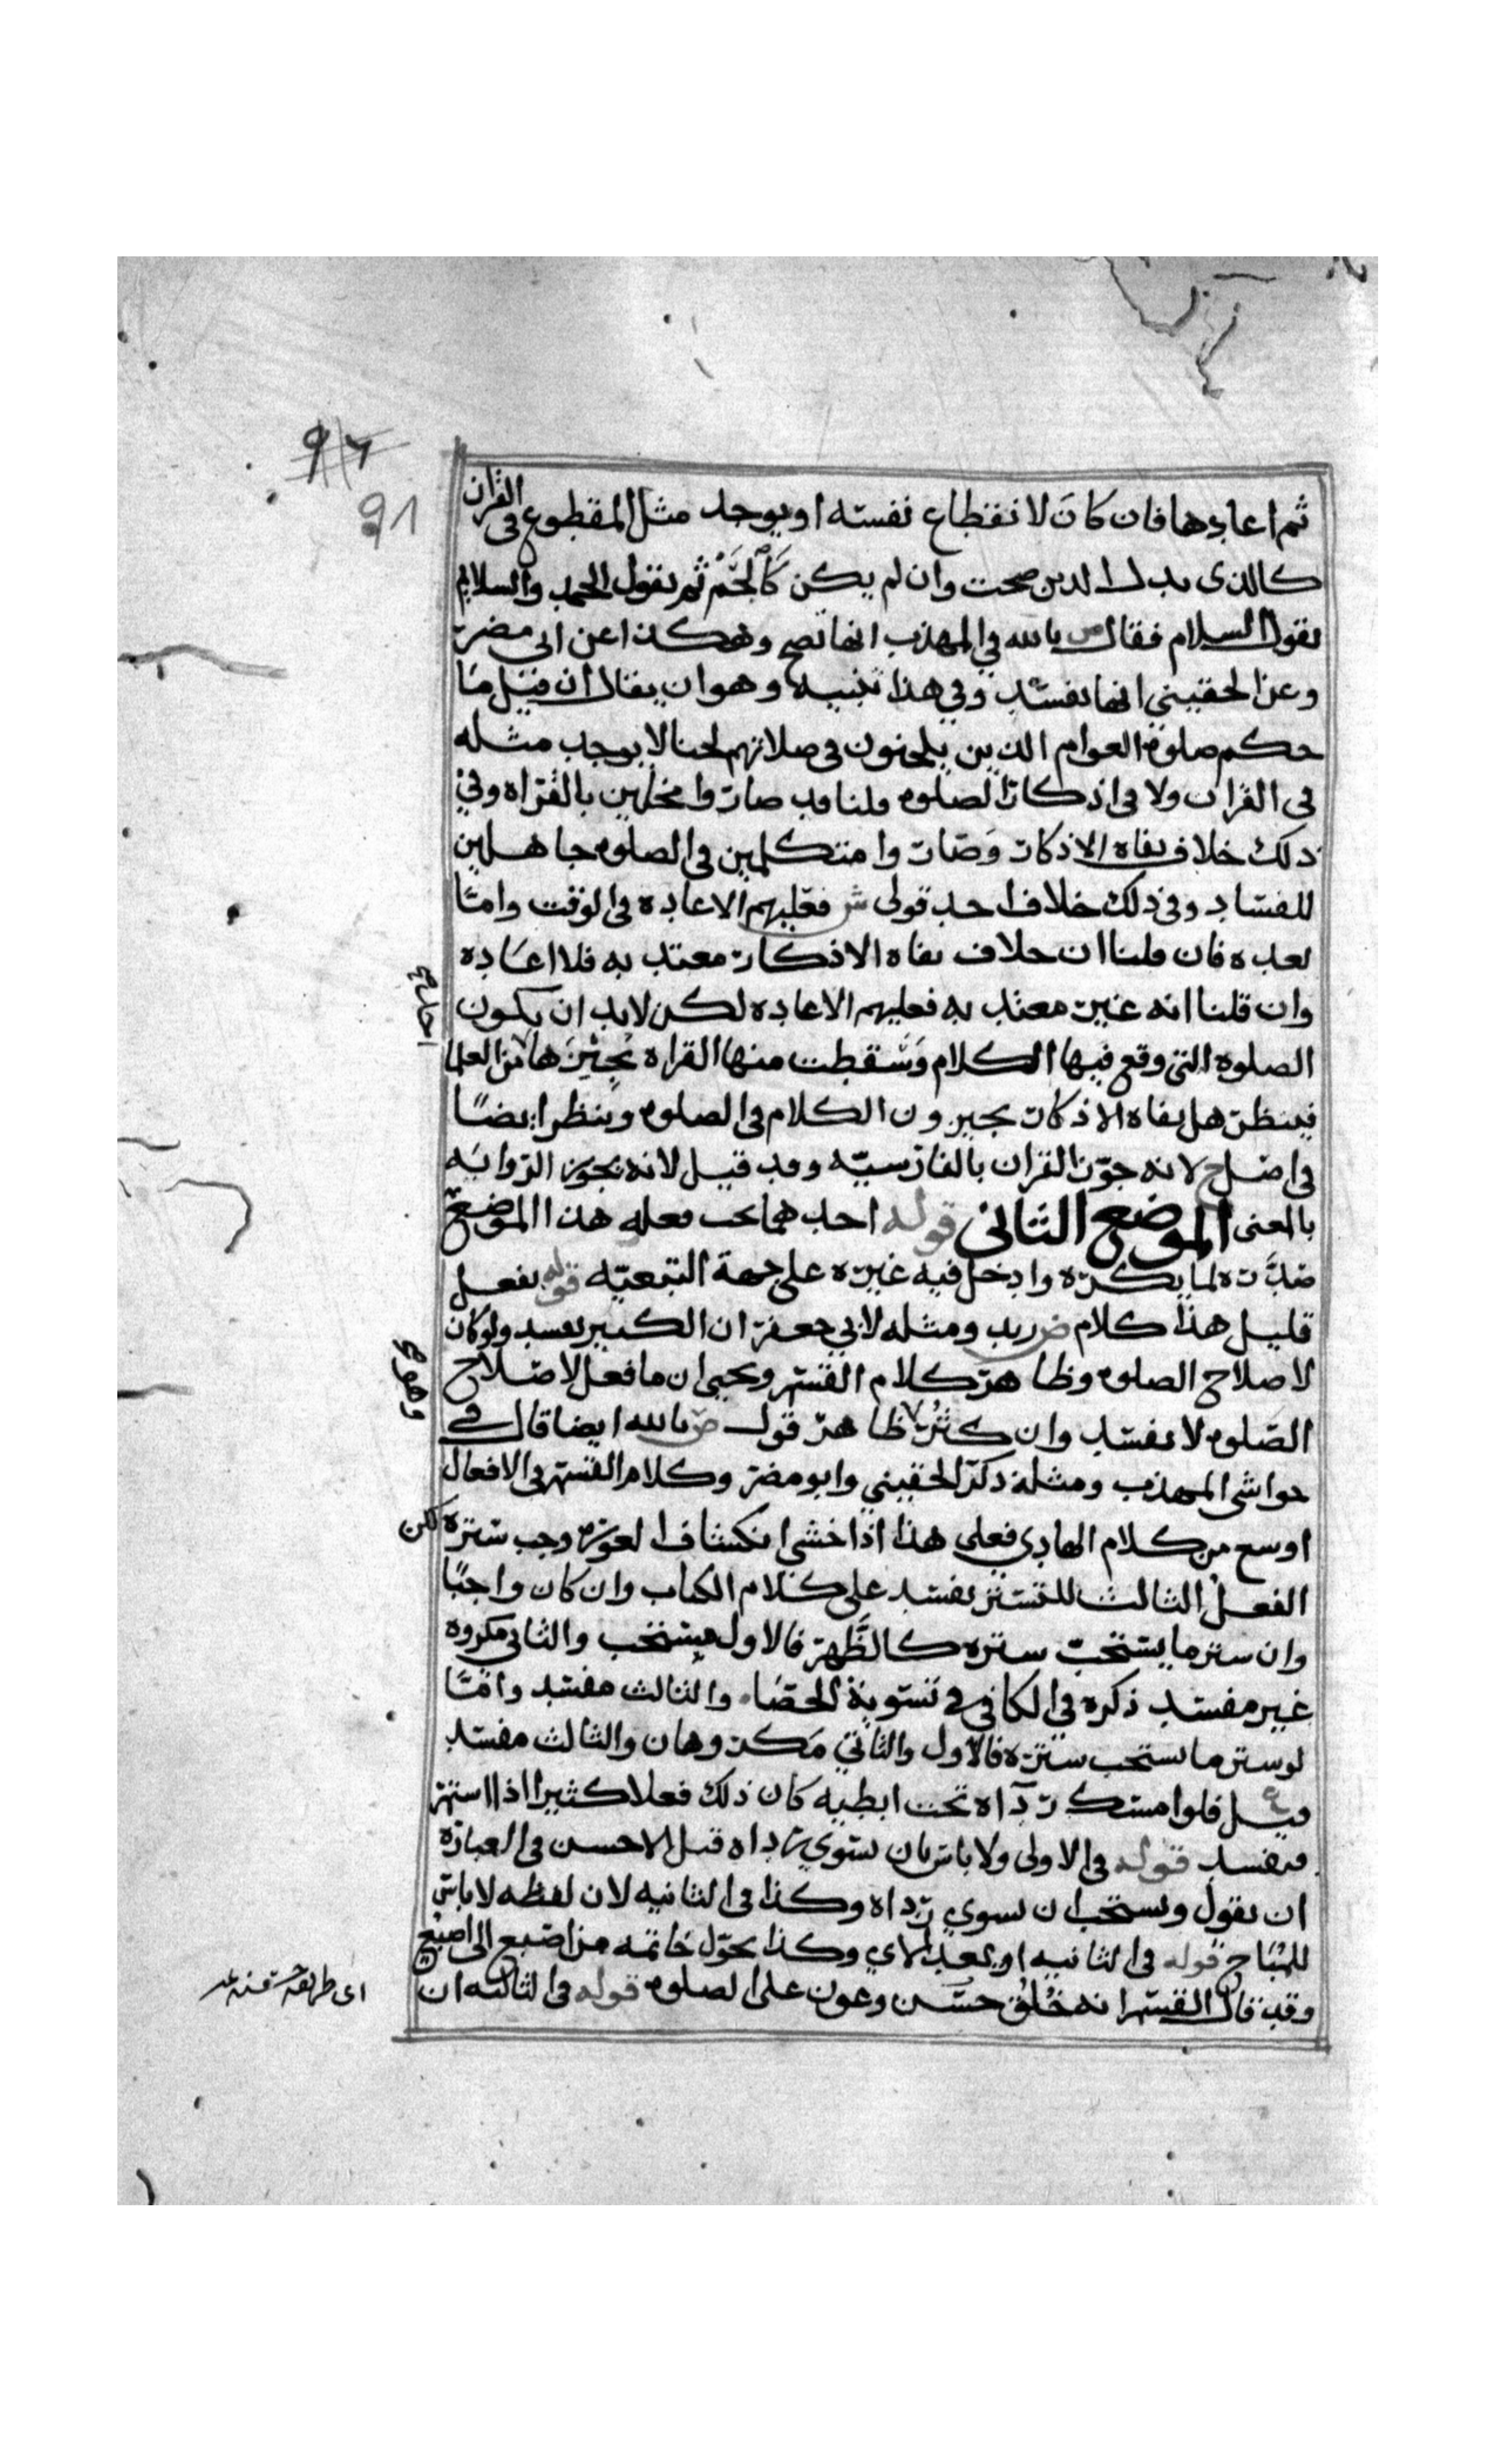 91
ثم اعادها فان كان لانقطاع نفسه او يوجد مثل المقطوع في القران
كالذى بدل الدين صحت وان لم يكن كالحم ثم يقول الحمد والسلا ثم
يقول السلام فقال ض بالله في المهذب انها تصح وهكذا عن ابي مضر
وعن الحقيني انها تفسد وفي هذا تنبيه وهو ان يقال ان قيل ما
حكم صلوة العوام الذين يلحنون في صلاتهم لحنا لا يوجد مثله
في القران ولا في اذكار الصلوه قلنا قد صاروا مخلين بالقراه وفي
ذلك خلاف نفاه الاذكار وصاروا متكلمين في الصلوه جاهلين
للفساد وفي ذلك خلاف احد قولى ش فعليهم الاعاده في الوقت واما
بعده فان قلنا ان خلاف نفاه الاذكار معتد به فلا اعاده
وان قلنا انه غير معتد به فعليهم الاعاده لكن لابد ان يكون
الصلوه التي وقع فيها الكلام وسقطت منها القراه يجيزها من العلما
فينظر هل نفاه الاذكار يجيزون الكلام في الصلوه وينظر ايضا
في اصل ح لانه جوز القران بالفارسيه وقد قيل لانه يجوز الروايه
بالمعنى الموضع الثاني قوله احدهما يجب فعله هذا الموضع
صدره لما يكره وادخل فيه غيره على جهة التبعيه قوله بفعل
قليل هذا كلام ض زيد ومثله لابي جعفر ان الكثير يفسد ولو كان
لاصلاح الصلوه وظاهر كلام القسم ويحيى ان ما فعل لاصلاح
الصلوه لا يفسد وان كثر ظاهر قول ض بالله ايضا قال في
حواشى المهذب ومثله ذكر الحقيني وابو مضر وكلام القسم في الافعال
اوسع من كلام الهادي فعلى هذا اذا خشي انكشاف العوره وجب ستره لكن
الفعل الثالث للتستر يفسد على كلام الكتاب وان كان واجبا
وان ستر ما يستحب ستره كالظهر فالاول مستحب والثاني مكروه
غير مفسد ذكره في الكافي في تسوية الحصا والثالث مفسد واما
لو ستر ما يستحب ستره فالاول والثاني مكروهان والثالث مفسد
قيل ع فلو امسك رداه تحت ابطيه كان ذلك فعلا كثيرا اذا استمر
فيفسد قوله في الاولى ولا باس بان يسوي رداه قيل الاحسن في العباره
ان يقول ويستحب ان يسوي رداه وكذا في الثانيه لان لفظه لا باس
للمباح قوله في الثانيه او بعد الاي وكذا يحول خاتمه من اصبع الى اصبع
وقد قال القسم انه خلق حسن وعون على الصلوه قوله في الثالثه ان